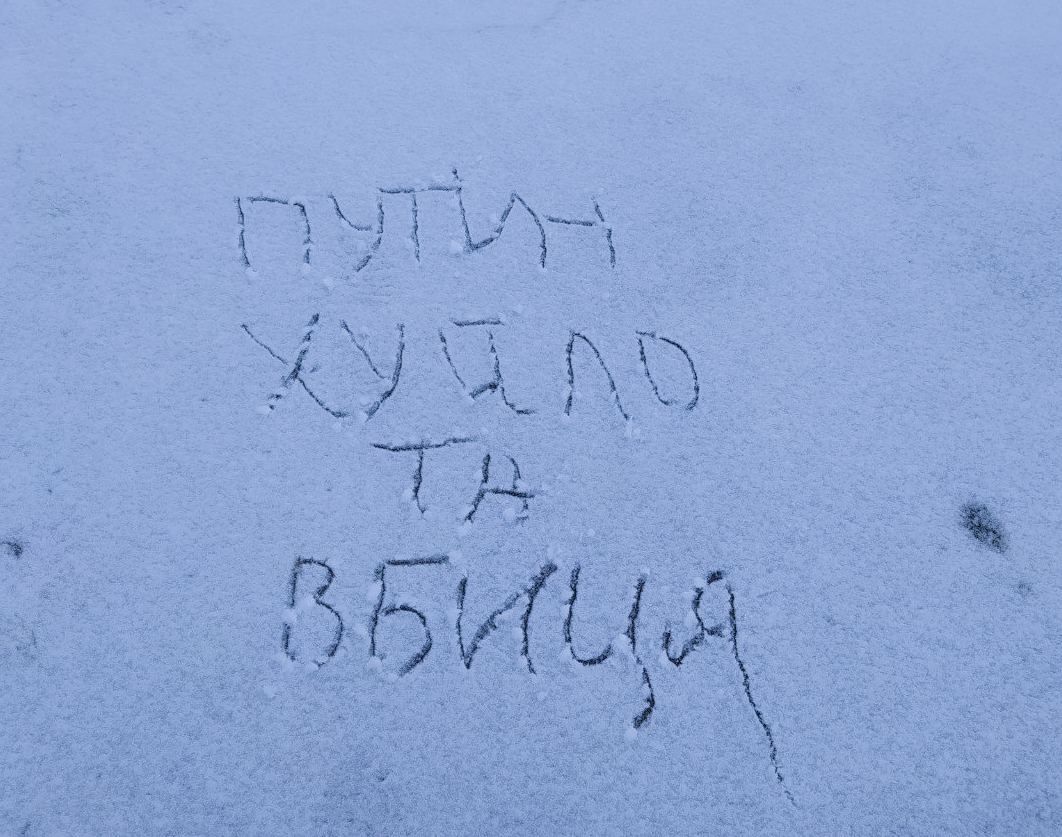 ПУТІН
ХУЙЛО
ТА
ВБИЦЯ